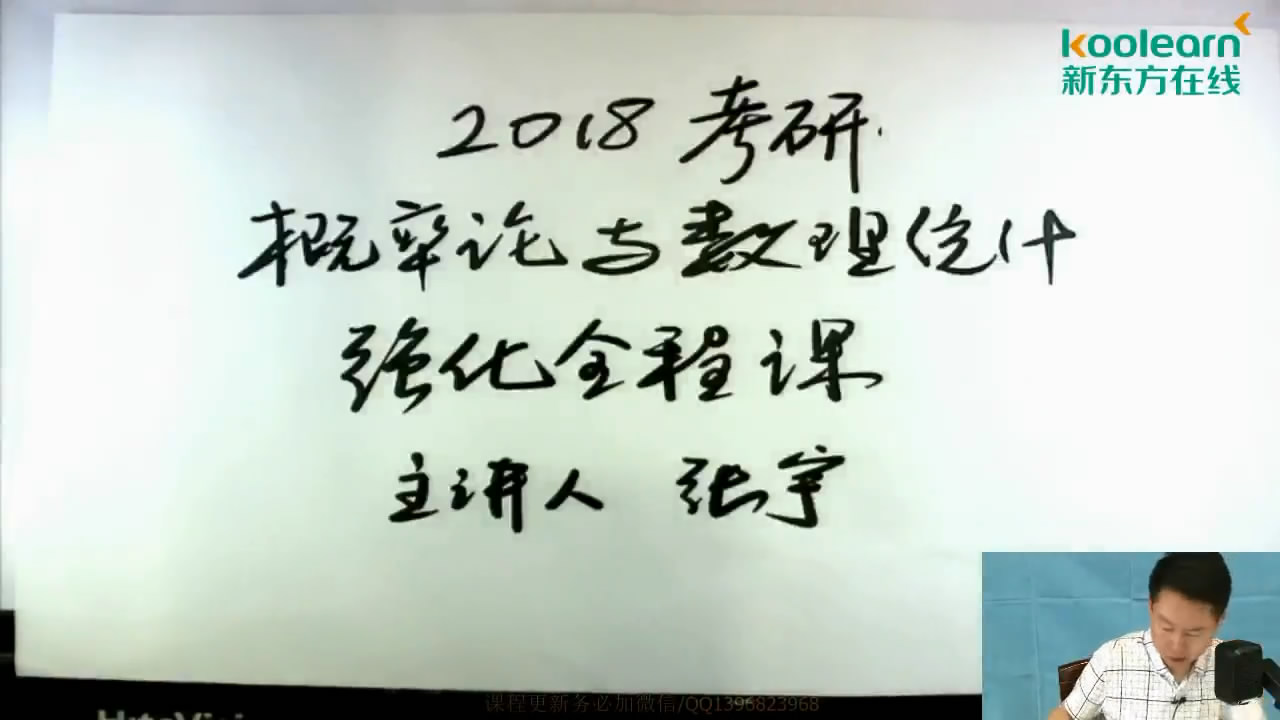 koolearn
新东方在线
2018 考研
概率论与数理统计
强化全程课
主讲人 张宇
课程更新务必加微信/QQ1396823968